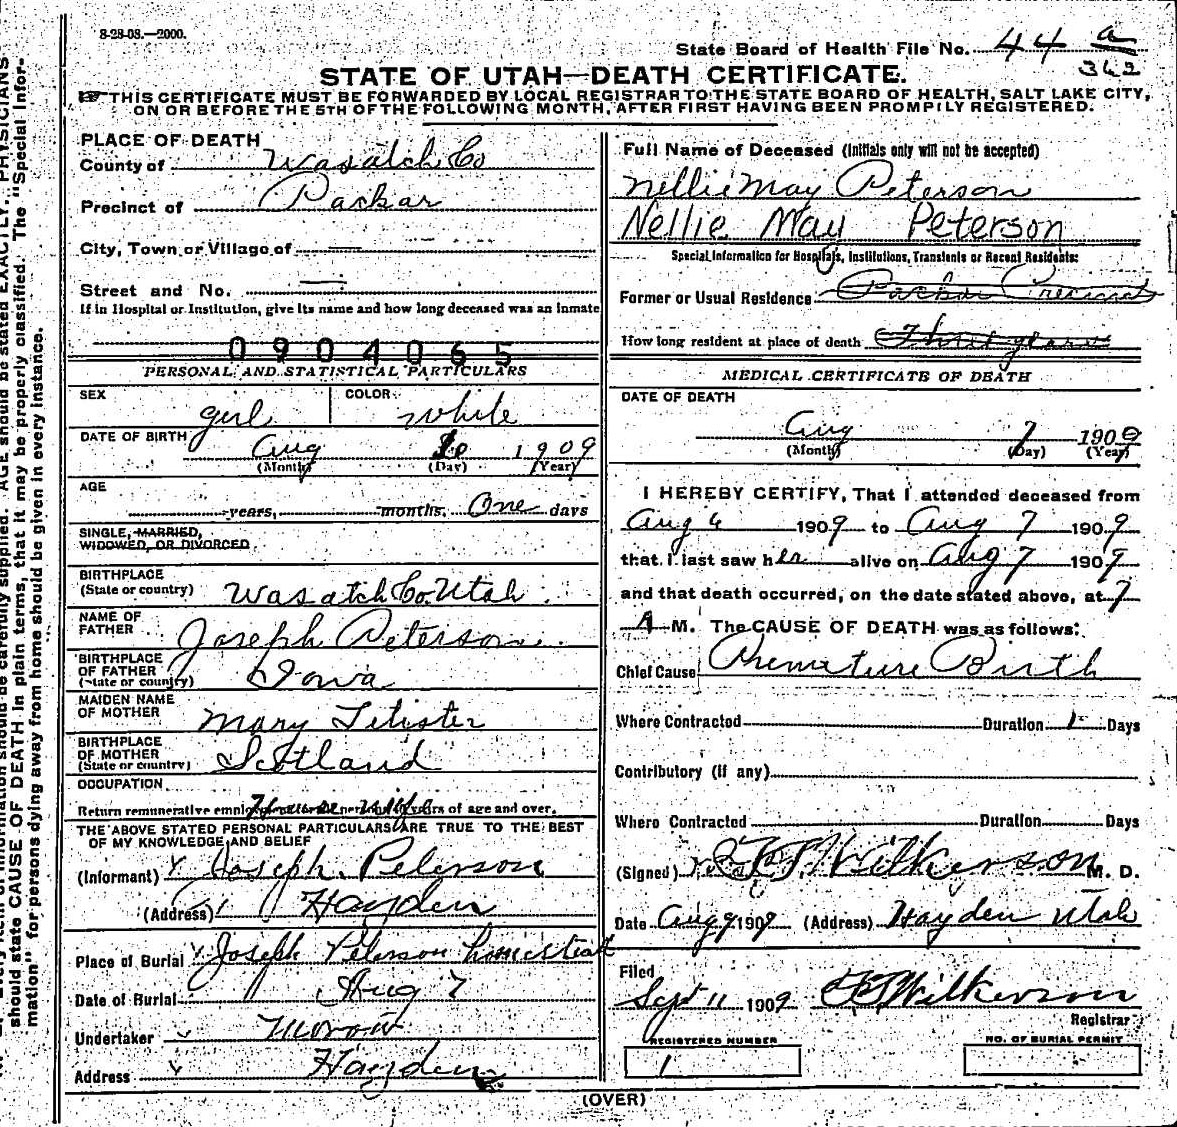 8-28-08.—2000.
State Board of Health File No. 44 a
362
STATE OF UTAH—DEATH CERTIFICATE.
THIS CERTIFICATE MUST BE FORWARDED BY LOCAL REGISTRAR TO THE STATE BOARD OF HEALTH, SALT LAKE CITY,
ON OR BEFORE THE 5TH OF THE FOLLOWING MONTH, AFTER FIRST HAVING BEEN PROMPTLY REGISTERED.
should state CAUSE OF DEATH in plain terms, that it may be properly classified. The "Special Infor-
mation" for persons dying away from home should be given in every instance.
PLACE OF DEATH
County of Wasatch Co
Precinct of Packar
City, Town or Village of —
Street and No. —
If in Hospital or Institution, give its name and how long deceased was an inmate
0904065
PERSONAL AND STATISTICAL PARTICULARS
SEX girl COLOR white
DATE OF BIRTH Aug 1909
(Month) (Day) (Year)
AGE
years, months, One days
SINGLE, MARRIED,
WIDOWED, OR DIVORCED
BIRTHPLACE
(State or country) Wasatch Co. Utah.
NAME OF
FATHER Joseph Peterson.
BIRTHPLACE
OF FATHER
(State or country) Iowa
MAIDEN NAME
OF MOTHER Mary
BIRTHPLACE
OF MOTHER
(State or country) Scotland
OCCUPATION
Return remunerative years of age and over.
THE ABOVE STATED PERSONAL PARTICULARS ARE TRUE TO THE BEST
OF MY KNOWLEDGE AND BELIEF
(Informant) Joseph Peterson
(Address) Hayden
Place of Burial Joseph Peterson homestead
Date of Burial Aug 7
Undertaker
Address Hayden
Full Name of Deceased (Initials only will not be accepted)
Nellie May Peterson
Nellie May Peterson
Special Information for Hospitals, Institutions, Transients or Recent Residents:
Former or Usual Residence Packar Precinct
How long resident at place of death years
MEDICAL CERTIFICATE OF DEATH
DATE OF DEATH
Aug 7 1909
(Month) (Day) (Year)
I HEREBY CERTIFY, That I attended deceased from
Aug 6 1909 to Aug 7 1909
that I last saw her alive on Aug 7 1909
and that death occurred, on the date stated above, at 7
A M. The CAUSE OF DEATH was as follows:
Chief Cause Premature Birth
Where Contracted Duration 1 Days
Contributory (if any)
Where Contracted Duration Days
(Signed) Wilkerson M. D.
Date Aug 9 1909 (Address) Hayden Utah
Filed
Sept 11 1909 Wilkerson
Registrar
REGISTERED NUMBER
1
NO. OF BURIAL PERMIT
(OVER)